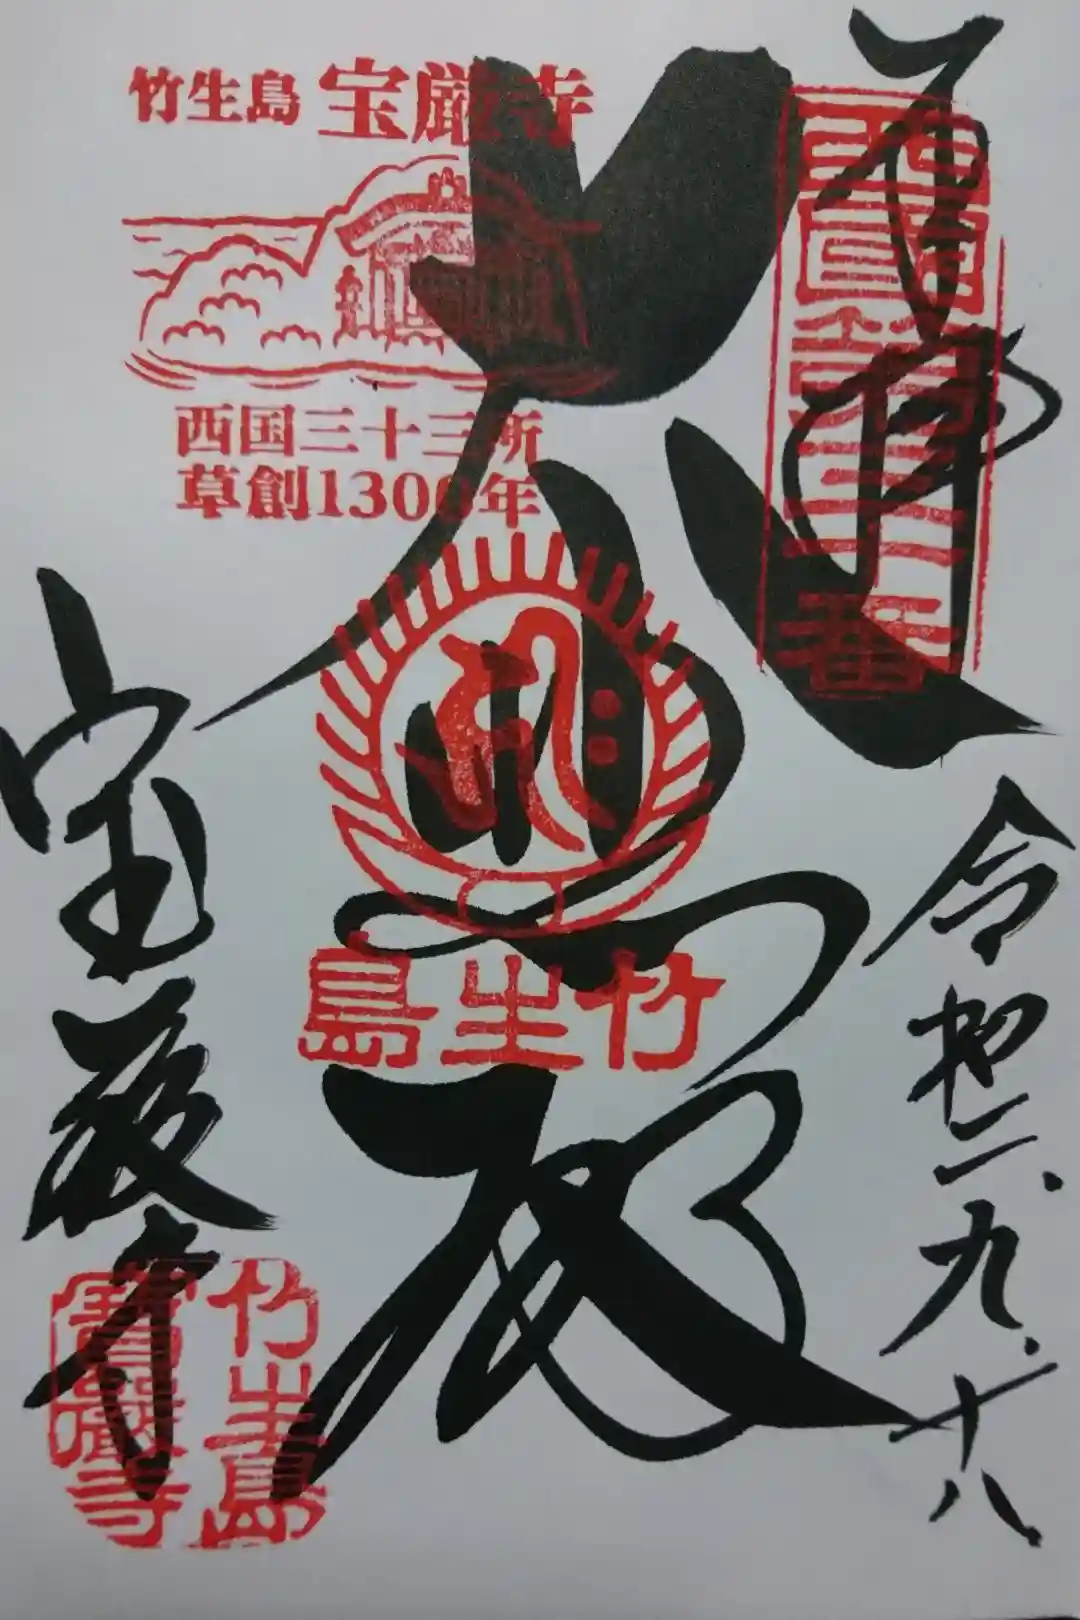 奉拝
西國第三十番
令和二、九、十八
竹生島 宝厳寺
西国三十三所
草創1300年
大悲殿
竹生島
宝厳寺
竹生島
寶嚴寺